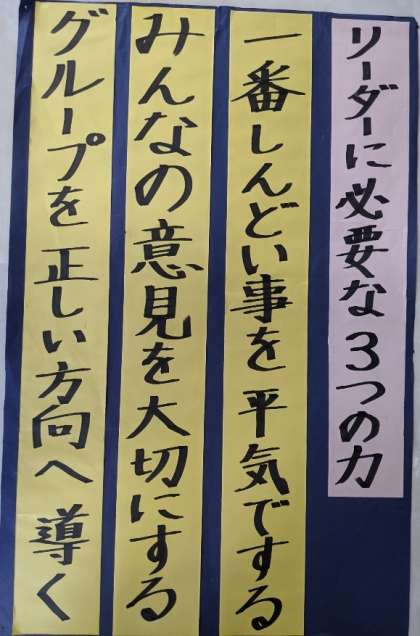 リーダーに必要な3つの力
一番しんどい事を平気でする
みんなの意見を大切にする
グループを正しい方向へ導く